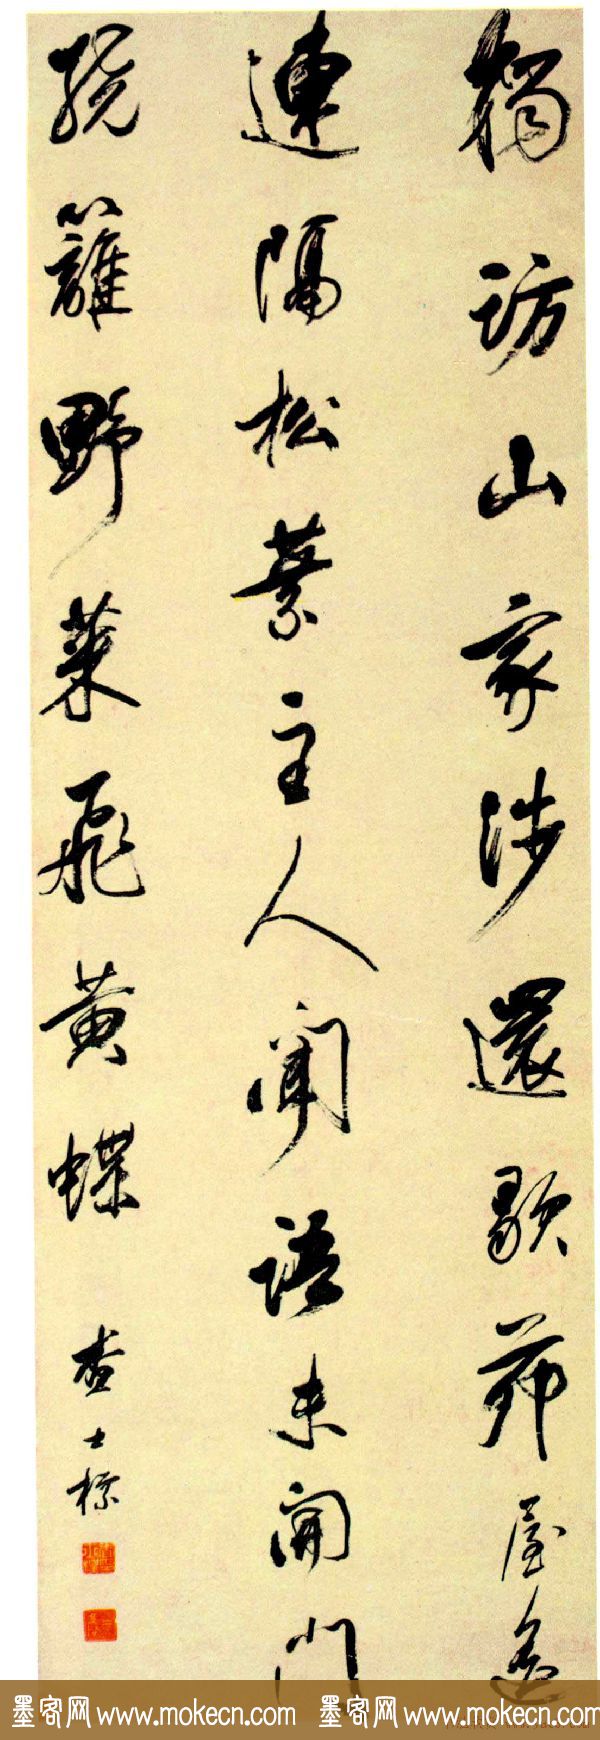 獨訪山家涉還歇茆屋
連隔松葉主人聞語未開門
繞籬野菜飛黃蝶
查士標
墨客网 www.mokecn.com 墨客网 www.mokecn.com